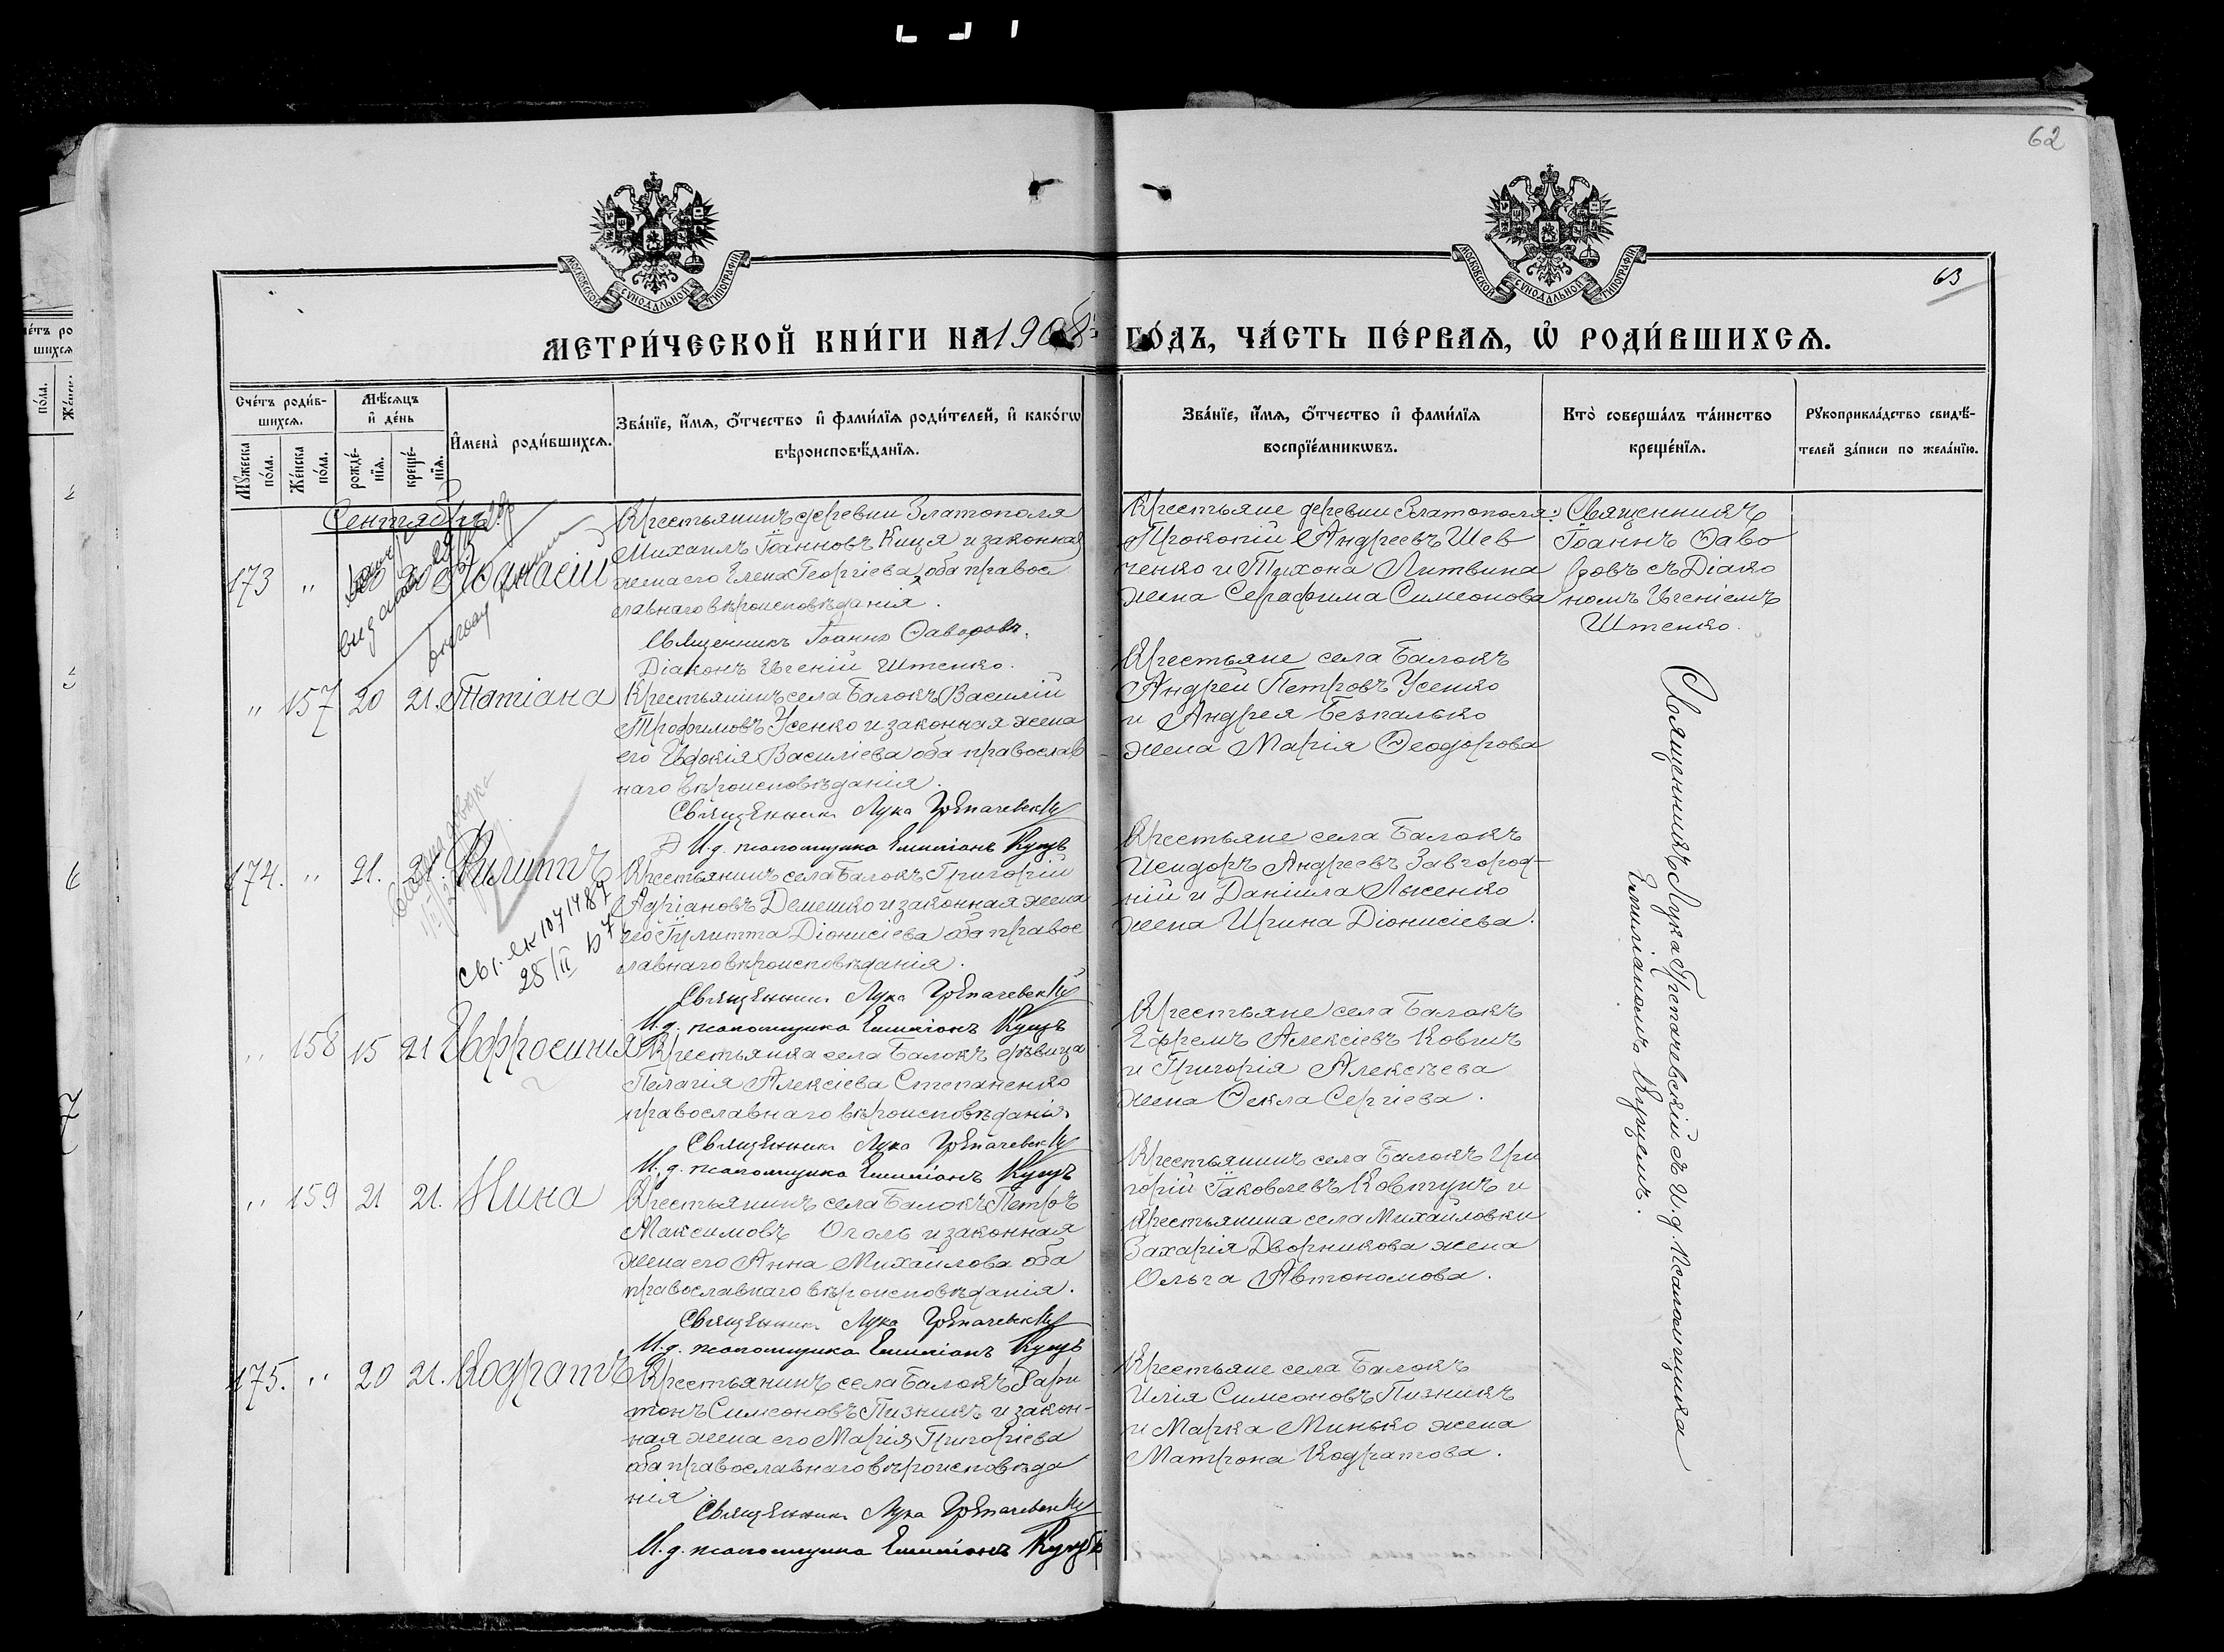 62
63
МОСКОВСКОЙ СѴНОДАЛЬНОЙ ТИПОГРАФІИ
МОСКОВСКОЙ СѴНОДАЛЬНОЙ ТИПОГРАФІИ
МЕТРИ́ЧЕСКОЙ КНИ́ГИ НА 1908 ГО́ДЪ, ЧА́СТЬ ПЕ́РВАѦ, Ѡ҆ РОДИ́ВШИХСѦ.
Сче́тъ роди́в-
шихсѧ.
Мꙋжеска по́ла.
Же́нска по́ла.
Мѣ́сѧцъ
и҆ де́нь
рожде́-
нїѧ.
креще́-
нїѧ.
И҆мена̀ роди́вшихсѧ.
Зва́нїе, и҆́мѧ, ѻ҆́тчество и҆ фами́лїѧ роди́телей, и҆ како́гѡ
вѣроисповѣ́данїѧ.
Зва́нїе, и҆́мѧ, ѻ҆́тчество и҆ фами́лїѧ
воспрїе́мникѡвъ.
Кто̀ соверша́лъ та́инство
креще́нїѧ.
Рꙋкоприкла́дство свидѣ́-
телей за́писи по жела́нїю.
Сентябрь
173 " 20 Аѳанасій
Крестьянинъ деревни Златополя
Михаилъ Іоанновъ Куця и законная
жена его Елена Георгіева, оба правос
лавнаго вѣроисповѣданія.
Священникъ Іоаннъ Ѳаворовъ.
Діаконъ Евгеній Штенко.
Крестьяне деревни Златополя:
Прокопій Андреевъ Шев
ченко и Тихона Литвина
жена Серафима Симеонова
Священникъ
Іоаннъ Ѳаво
ровъ съ Діако
номъ Евгеніемъ
Штенко.
" 157 20 21. Татіана
Крестьянинъ села Балокъ Василій
Трофимовъ Усенко и законная жена
его Евдокія Василіева оба православ
наго вѣроисповѣданія.
Священникъ Лука Грепачевскій
И. д. псаломщика Емиліанъ Куцъ
Крестьяне села Балокъ
Андрей Петровъ Усенко
и Андрея Безпалько
жена Марія Ѳеодорова
174. " 21. 21. Филиппъ
Крестьянинъ села Балокъ Григорій
Адріановъ Демешко и законная жена
его Іулитта Діонисіева оба правос
лавнаго вѣроисповѣданія.
Священникъ Лука Грепачевскій
И. д. псаломщика Емиліанъ Куцъ
Крестьяне села Балокъ
Исидоръ Андреевъ Завгород-
ній и Даніила Лысенко
жена Ирина Діонисіева.
25/II
" 158 15 21 Евфросинія
Крестьянка села Балокъ дѣвица
Пелагія Алексіева Степаненко
православнаго вѣроисповѣданія.
Священникъ Лука Грепачевскій
И. д. псаломщика Емиліанъ Куцъ
Крестьяне села Балокъ
Ефремъ Алексіевъ Ковичъ
и Григорія Алексѣева
жена Ѳекла Сергіева.
" 159 21 21. Нина
Крестьянинъ села Балокъ Петръ
Максимовъ Оголь и законная
жена его Анна Михайлова оба
православнаго вѣроисповѣданія.
Священникъ Лука Грепачевскій
И. д. псаломщика Емиліанъ Куцъ
Крестьянинъ села Балокъ Гри
горій Іаковлевъ Ковтунъ и
крестьянина села Михайловки
Захарія Дворникова жена
Ольга Автономова.
175. " 20 21. Кодратъ
Крестьянинъ села Балокъ Хари
тонъ Симеоновъ Пизникъ и закон-
ная жена его Марія Григоріева
оба православнаго вѣроисповѣда
нія.
Священникъ Лука Грепачевскій
И. д. псаломщика Емиліанъ Куцъ
Крестьяне села Балокъ
Илія Симеоновъ Пизникъ
и Марка Минько жена
Матрона Кодратова.
Священникъ Лука Грепачевскій съ И. д. Псаломщика
Емиліаномъ Куцемъ.